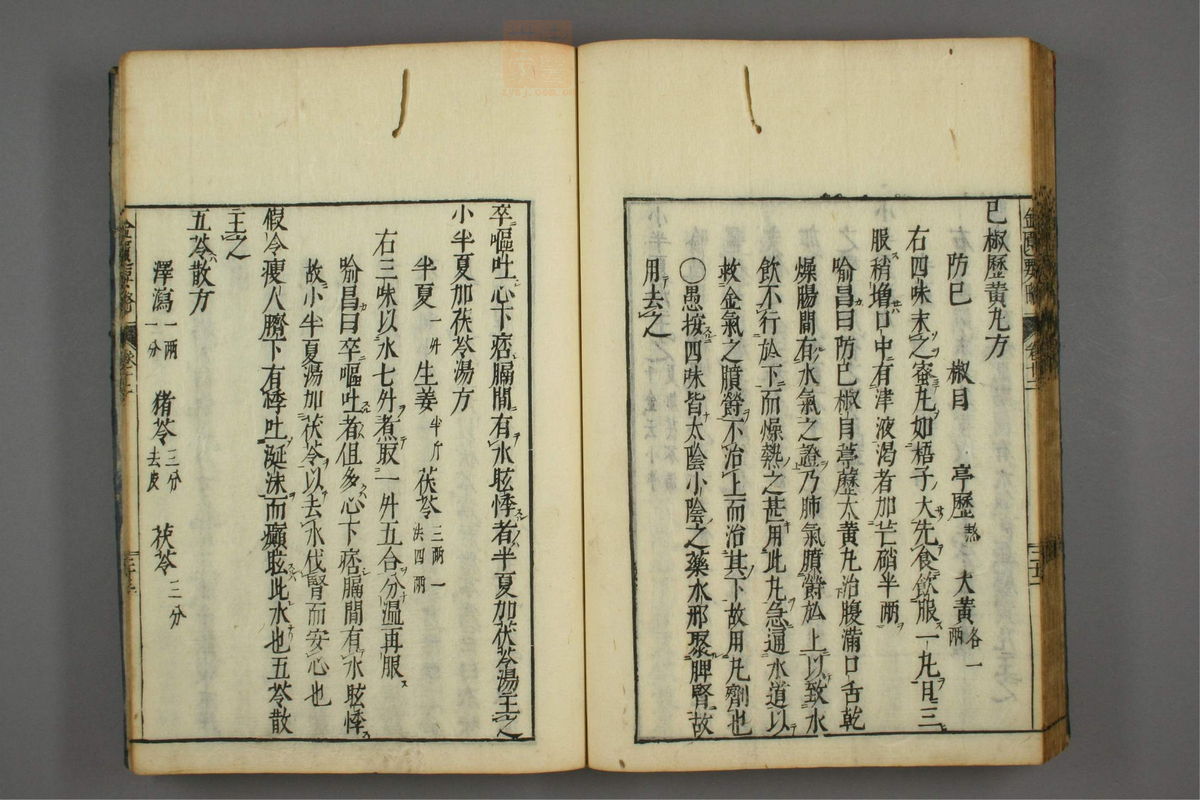 已椒歷黃丸方
防已 椒目 葶歷熬 大黃各一兩
右四味末之蜜丸如梧子大先食飲服一丸日三
服稍增口中有津液渴者加芒硝半兩
喻昌曰防已椒目葶藶大黃丸治腹滿口舌乾
燥腸間有水氣之證乃肺氣膹欝於上以致水
飲不行於下而燥熱之甚用此丸急逼水道以
救金氣之膹欝不治上而治其下故用丸劑也
○愚按四味皆太陰小陰之藥水邪聚脾腎故
用去之
卒嘔吐心下痞膈間有水眩悸者半夏加茯苓湯主之
小半夏加茯苓湯方
半夏一升 生姜半斤 茯苓三兩一法四兩
右三味以水七升煮取一升五合分溫再服
喻昌曰卒嘔吐者但多心下痞膈間有水眩悸
故小半夏湯加茯苓以去水伐腎而安心也
假冷瘦人臍下有悸吐涎沫而癲眩此水也五苓散
主之
五苓散方
澤瀉一兩一分 猪苓三分去皮 茯苓三分